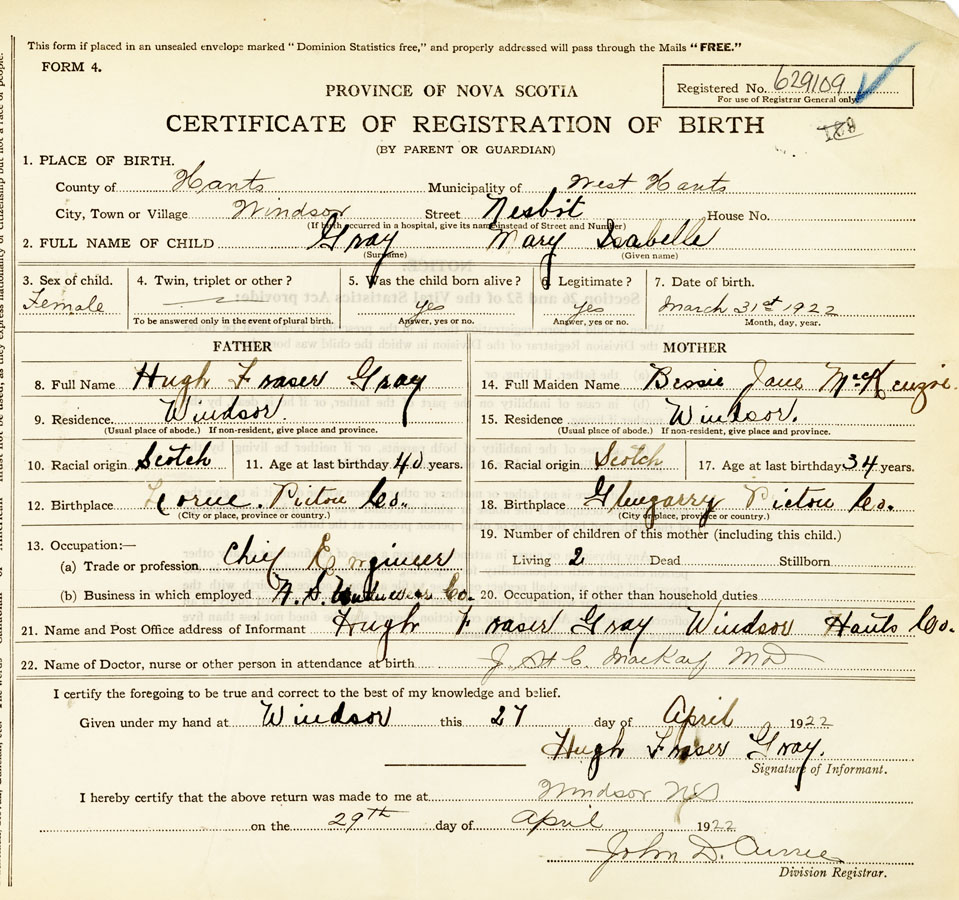 This form if placed in an unsealed envelope marked "Dominion Statistics free," and properly addressed will pass through the Mails "FREE."
FORM 4.
Registered No. 629109
For use of Registrar General only.
PROVINCE OF NOVA SCOTIA
CERTIFICATE OF REGISTRATION OF BIRTH
188
(BY PARENT OR GUARDIAN)
1. PLACE OF BIRTH.
County of Hants Municipality of West Hants
City, Town or Village Windsor Street Nesbit House No.
(If birth occurred in a hospital, give its name instead of Street and Number)
2. FULL NAME OF CHILD Gray Mary Isabelle
(Surname) (Given name)
3. Sex of child. 4. Twin, triplet or other? 5. Was the child born alive? 6. Legitimate? 7. Date of birth.
Female yes yes March 31st 1922
To be answered only in the event of plural birth. Answer, yes or no. Answer, yes or no. Month, day, year.
FATHER MOTHER
8. Full Name Hugh Fraser Gray 14. Full Maiden Name Bessie Jane MacKenzie.
9. Residence. Windsor. 15. Residence Windsor.
(Usual place of abode.) If non-resident, give place and province. (Usual place of abode.) If non-resident, give place and province.
10. Racial origin Scotch 11. Age at last birthday 40 years. 16. Racial origin Scotch 17. Age at last birthday 34 years.
12. Birthplace Lorne. Pictou Co. 18. Birthplace Glengarry Pictou Co.
(City or place, province or country.) (City or place, province or country.)
13. Occupation:— 19. Number of children of this mother (including this child.)
(a) Trade or profession Chief Engineer Living 2 Dead Stillborn
(b) Business in which employed N. S. Co. 20. Occupation, if other than household duties
21. Name and Post Office address of Informant Hugh Fraser Gray Windsor Hants Co.
22. Name of Doctor, nurse or other person in attendance at birth J. MacKay MD
I certify the foregoing to be true and correct to the best of my knowledge and belief.
Given under my hand at Windsor this 27 day of April 1922
Hugh Fraser Gray.
Signature of Informant.
I hereby certify that the above return was made to me at Windsor NS
on the 29th day of April 1922
John D.
Division Registrar.